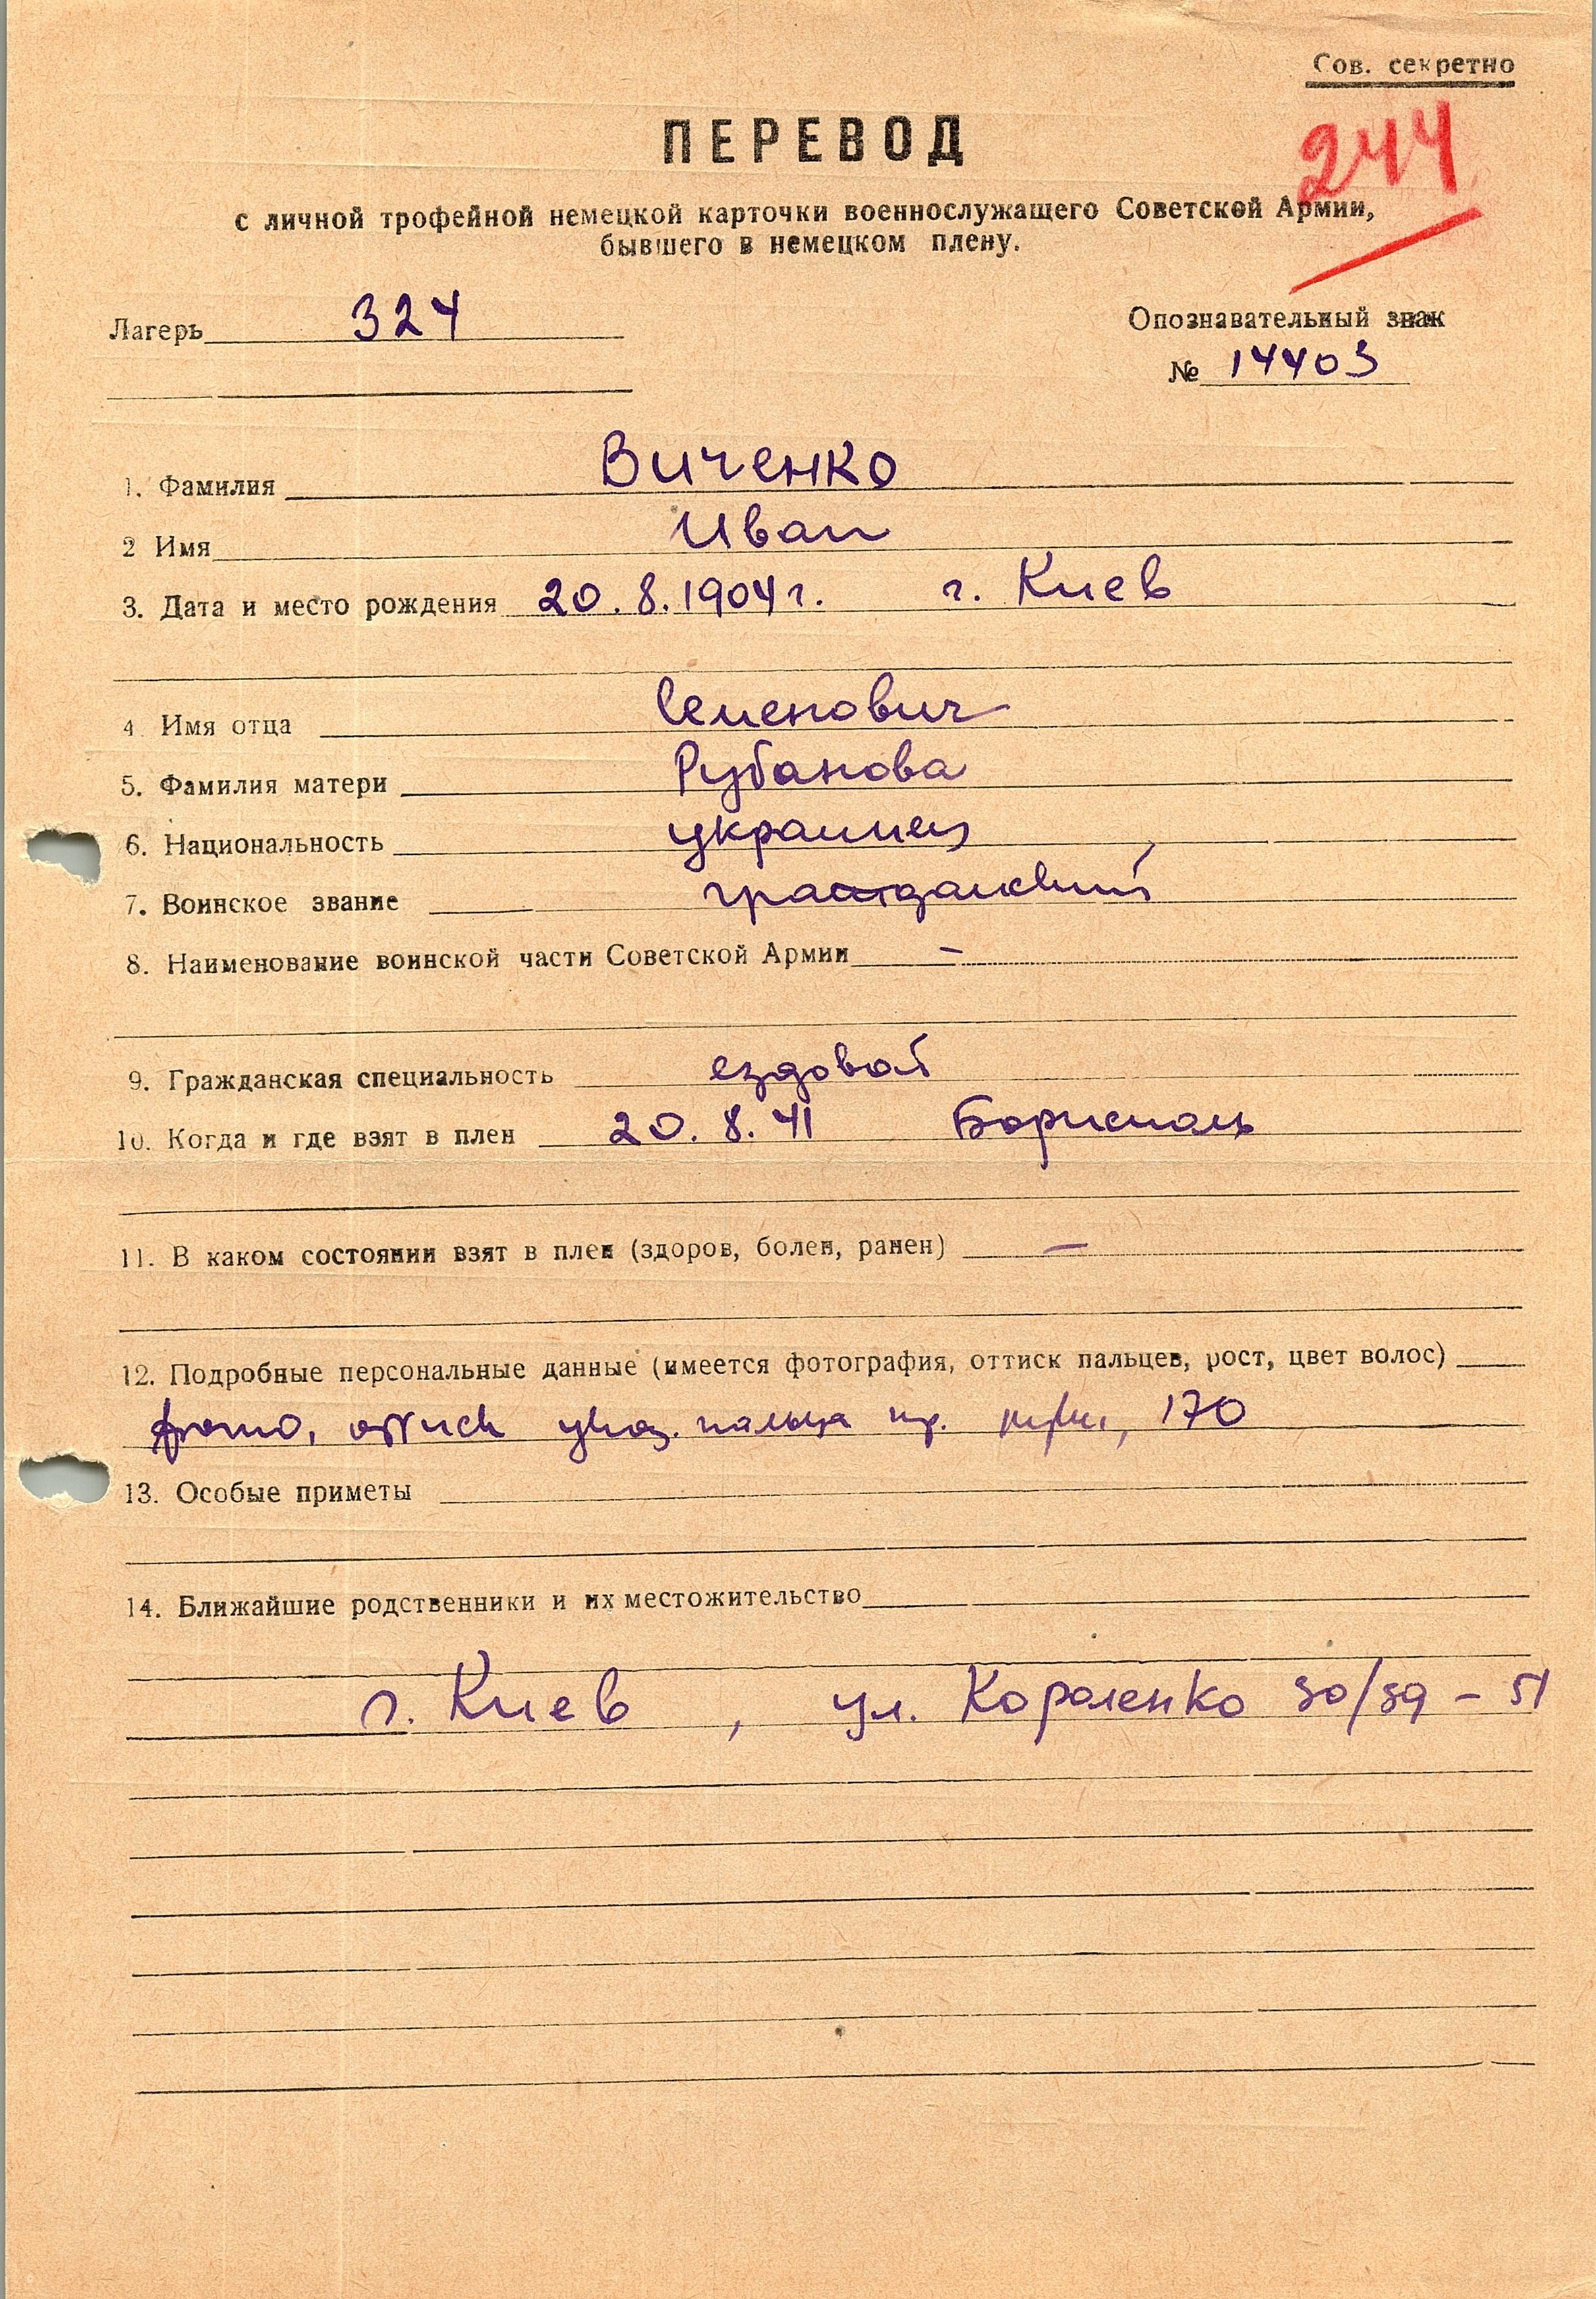 Сов. секретно
ПЕРЕВОД
244
с личной трофейной немецкой карточки военнослужащего Советской Армии,
бывшего в немецком плену.
Лагерь 324
Опознавательный знак
№ 14403
1. Фамилия Виченко
2 Имя Иван
3. Дата и место рождения 20.8.1904г. г. Киев
4. Имя отца Семенович
5. Фамилия матери Рубанова
6. Национальность украинец
7. Воинское звание гражданский
8. Наименование воинской части Советской Армии –
9. Гражданская специальность ездовой
10. Когда и где взят в плен 20.8.41 Борисполь
11. В каком состоянии взят в плен (здоров, болен, ранен) –
12. Подробные персональные данные (имеется фотография, оттиск пальцев, рост, цвет волос)
фото, оттиск указ. пальца пр. руки, 170
13. Особые приметы
14. Ближайшие родственники и их местожительство
г. Киев, ул. Короленко